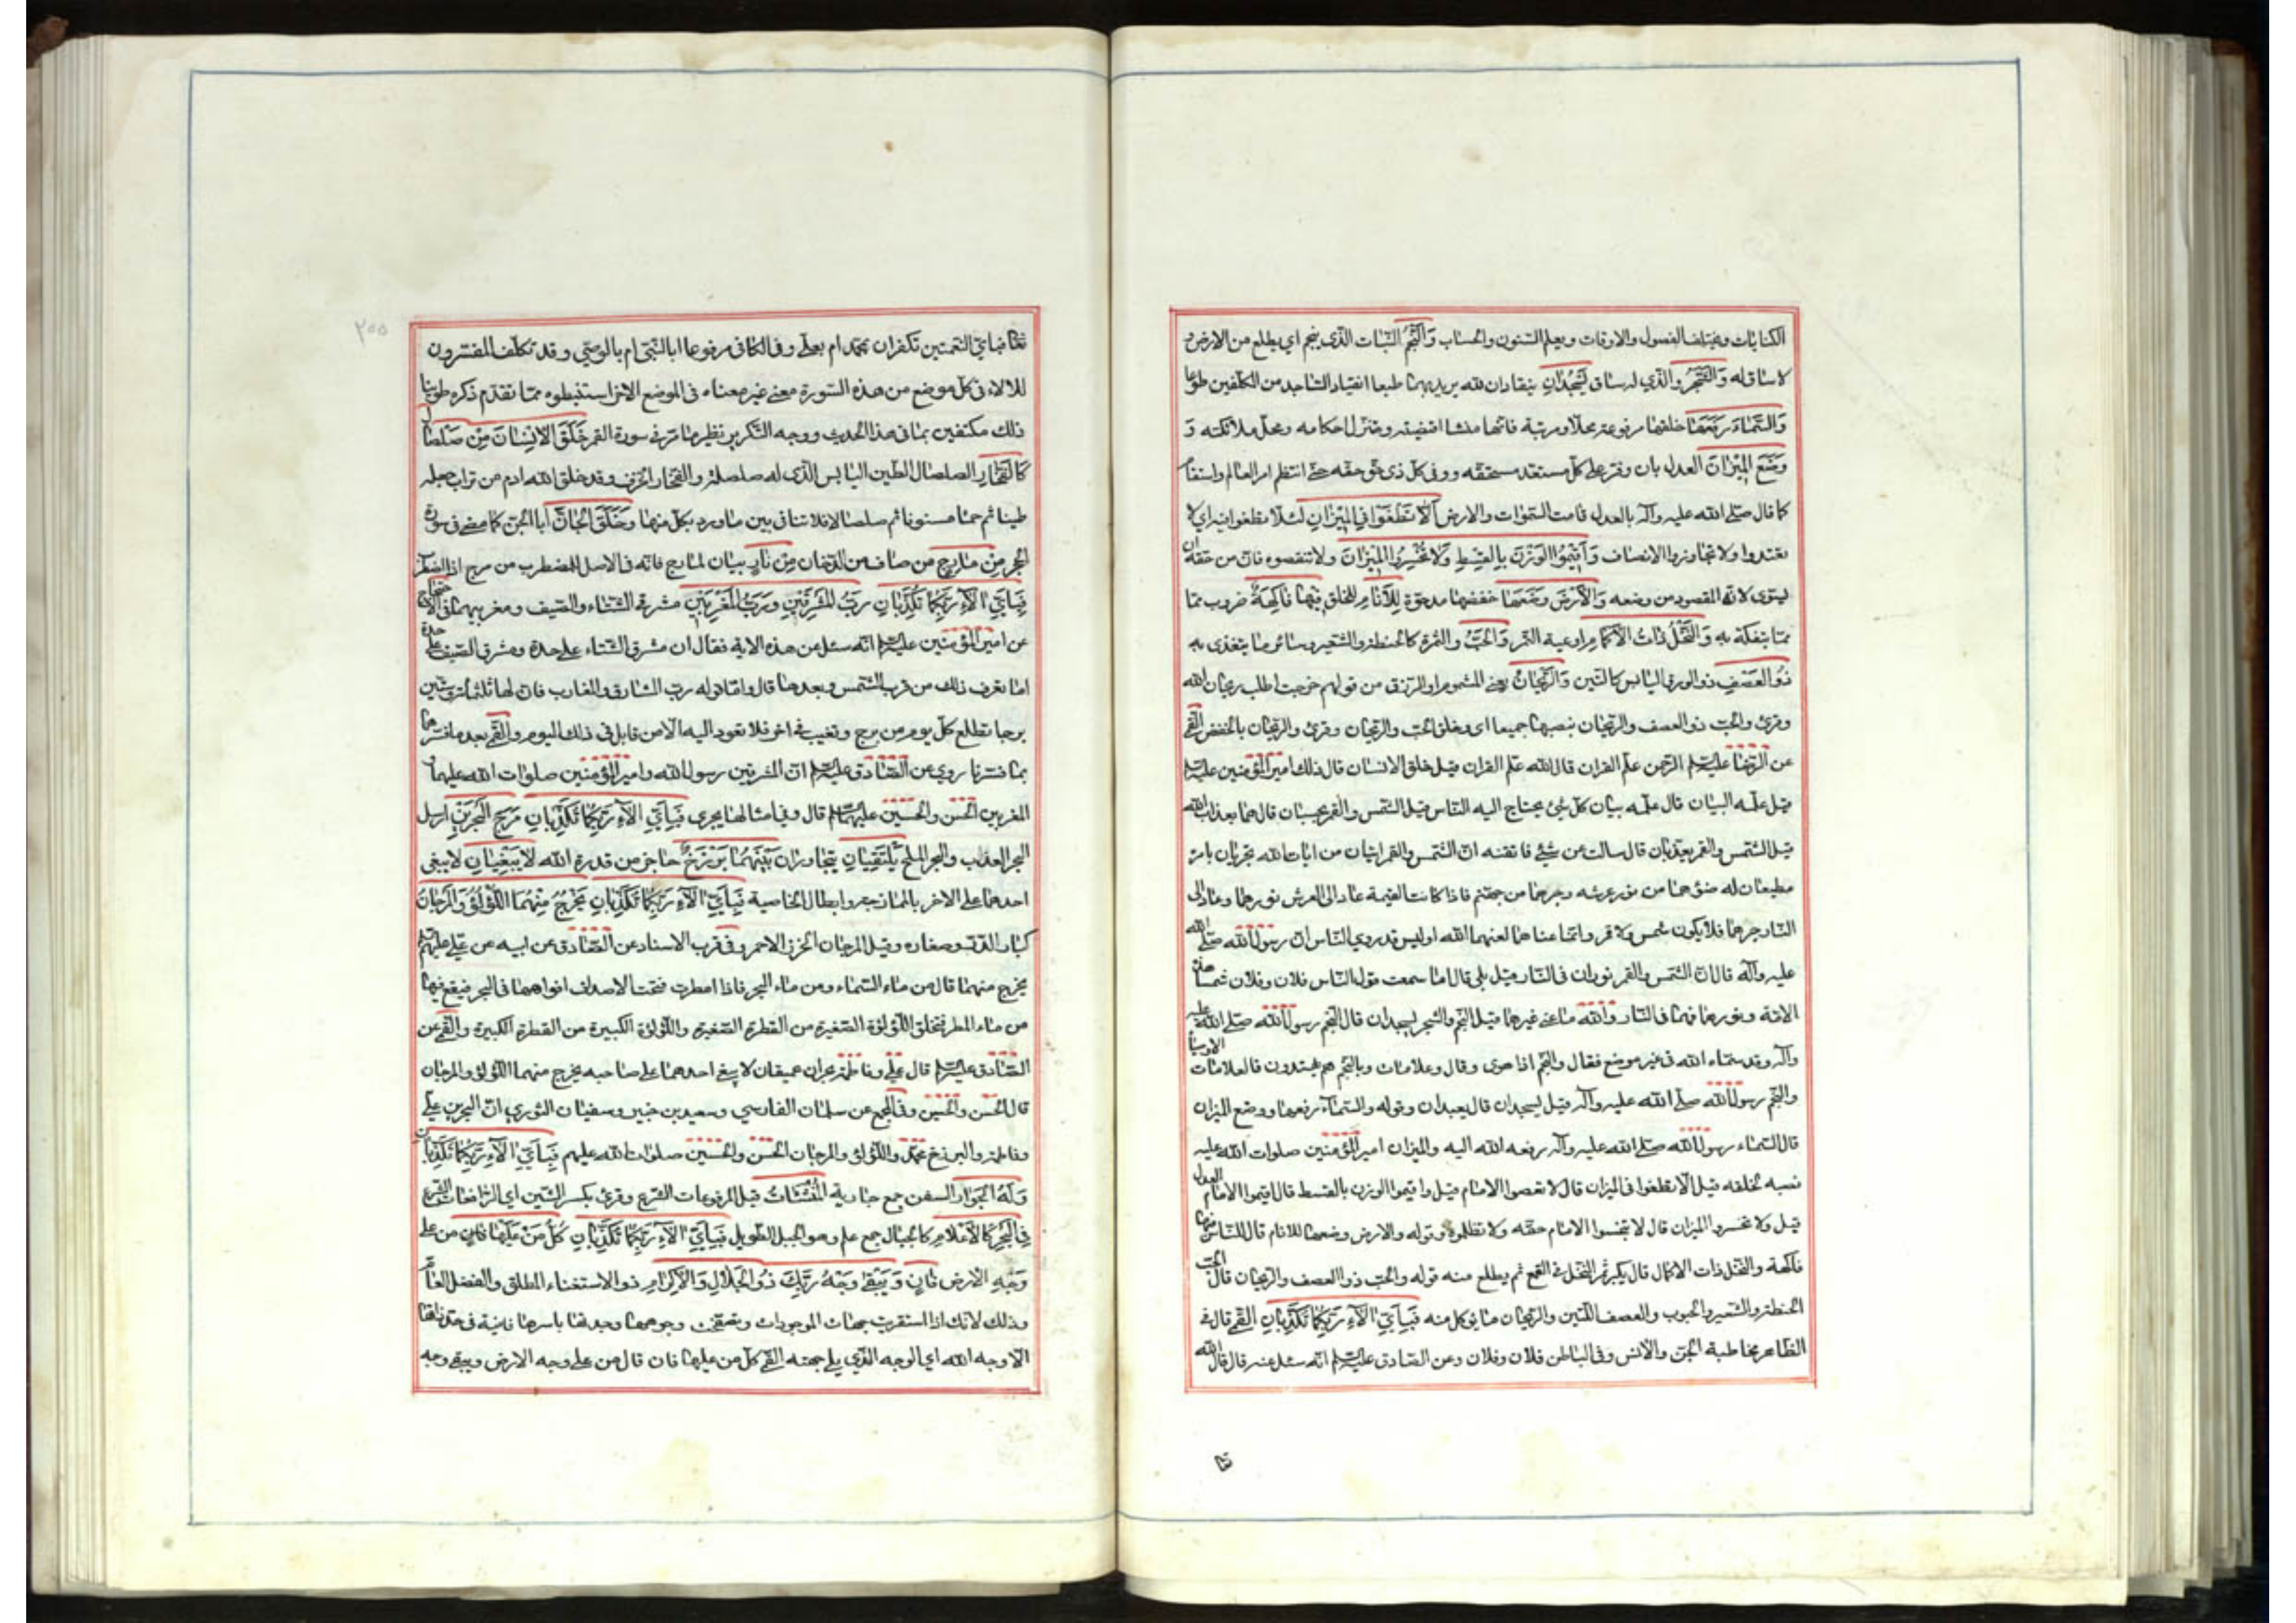 الكائنات ويختلف الفصول والاوقات ويعلم السنون والحساب وَالنَّجْمُ النبات الذي ينجم اي يطلع من الارض و
لا ساق له وَالشَّجَرُ والذي له ساق يَسْجُدٰانِ ينقادان لله يريد بهما طبعا انقياد الساجد من المكلفين طوعا
وَالسَّمٰاءَ رَفَعَهٰا خلقها مرفوعة محلا ومرتبة فانها منشا اقضيته ومتنزل احكامه ومحل ملائكته وَ
وَضَعَ الْمِيزٰانَ العدل بان وفر على كل مستعد مستحقه ووفى كل ذي حق حقه حتى انتظم امر العالم واستقام
كما قال صلى الله عليه وآله بالعدل قامت السموات والارض أَلّٰا تَطْغَوْا فِي الْمِيزٰانِ لئلا تطغوا فيه اي لا
تعتدوا ولا تجاوزوا الانصاف وَأَقِيمُوا الْوَزْنَ بِالْقِسْطِ وَلٰا تُخْسِرُوا الْمِيزٰانَ ولا تنقصوه فان من حقه ان
يسوى لانه المقصود من وضعه وَالْأَرْضَ وَضَعَهٰا خفضها مدحوة لِلْأَنٰامِ للخلق فِيهٰا فٰاكِهَةٌ ضروب مما
مما يتفكه به وَالنَّخْلُ ذٰاتُ الْأَكْمٰامِ اوعية التمر وَالْحَبُّ والثمرة كالحنطة والشعير وسائر ما يتغذى به
ذُو الْعَصْفِ ذو الورق اليابس كالتين وَالرَّيْحٰانُ يعني المشموم او الرزق من قولهم خرجت اطلب ريحان الله
وقرئ والحب ذو العصف والريحان بنصبها جميعا اي وخلق الحب والريحان وقرئ والريحان بالخفض القمي
عن الرضا عليه السلام الرحمن علم القران قال الله علم القران قيل خلق الانسان قال ذلك امير المؤمنين عليه السلام
قيل علمه البيان قال علمه بيان كل شئ يحتاج اليه الناس قيل الشمس والقمر بحسبان قال هما بعذاب الله
قيل الشمس والقمر يعذبان قال سالت عن شئ فاتقنه ان الشمس والقمر ايتان من ايات الله تجريان بامره
مطيعان له ضوءهما من نور عرشه وجرمهما من جهنم فاذا كانت القيمة عاد الى العرش نورهما وعاد الى
النار جرمهما فلا يكون شمس ولا قمر وانما عناهما لعنهما الله اوليس قد روي الناس ان رسول الله صلى الله
عليه وآله قال ان الشمس والقمر نوران في النار قيل بلى قال اما سمعت قول الناس فلان وفلان شمسا هذه
الامة ونورهما فهما في النار والله ما عنى غيرهما قيل النجم والشجر يسجدان قال النجم رسول الله صلى الله عليه
وآله وقد سماه الله في غير موضع فقال والنجم اذا هوى وقال وعلامات وبالنجم هم يهتدون فالعلامات الاوصياء
والنجم رسول الله صلى الله عليه وآله قيل يسجدان قال يعبدان وقوله والسماء رفعها ووضع الميزان
قال السماء رسول الله صلى الله عليه وآله رفعه الله اليه والميزان امير المؤمنين صلوات الله عليه
نصبه لخلقه قيل الا تطغوا في الميزان قال لا تعصوا الامام قيل واقيموا الوزن بالقسط قال اقيموا الامام العدل
قيل ولا تخسروا الميزان قال لا تبخسوا الامام حقه ولا تظلموه وقوله والارض وضعها للانام قال للناس فيها
فاكهة والنخل ذات الاكمام قال يكبر ثمر النخل في القمع ثم يطلع منه قوله والحب ذو العصف والريحان قال الحب
الحنطة والشعير والحبوب والعصف التين والريحان ما يؤكل منه فَبِأَيِّ آلٰاءِ رَبِّكُمٰا تُكَذِّبٰانِ القمي قال في
الظاهر مخاطبة الجن والانس وفي الباطن فلان وفلان وعن الصادق عليه السلام انه سئل عنه قال قال الله
تعا
٢٥٥
تعا فباي النعمتين تكفران بمحمد ام بعلي وفي الكافي مرفوعا ابا النبي ام بالوصي وقد تكلف المفسرون
للالاء في كل موضع من هذه السورة معنى غير معناه في الموضع الاخر استنبطوه مما تقدم ذكره طوينا
ذلك مكتفين بما في هذا الحديث ووجه التكرير نظير ما مر في سورة القمر خَلَقَ الْإِنْسٰانَ مِنْ صَلْصٰالٍ
كَالْفَخّٰارِ الصلصال الطين اليابس الذي له صلصلة والفخار الخزف وقد خلق الله ادم من تراب جعله
طينا ثم حما مسنونا ثم صلصالا فلا تنافي بين ما ورد بكل منها وَخَلَقَ الْجٰانَّ أبا الجن كما مضى في سورة
الحجر مِنْ مٰارِجٍ من صاف من الدخان مِنْ نٰارٍ بيان لمارج فانه في الاصل للمضطرب من مرج اذا اضطرب
فَبِأَيِّ آلٰاءِ رَبِّكُمٰا تُكَذِّبٰانِ رَبُّ الْمَشْرِقَيْنِ وَرَبُّ الْمَغْرِبَيْنِ مشرقي الشتاء والصيف ومغربيهما في الاحتجاج
عن امير المؤمنين عليه السلام انه سئل عن هذه الاية فقال ان مشرق الشتاء على حدة ومشرق الصيف على حدة
اما تعرف ذلك من قرب الشمس وبعدها قال واما قوله رب المشارق والمغارب فان لها ثلثمائة وستين
برجا تطلع كل يوم من برج وتغيب في اخر فلا تعود اليه الا من قابل في ذلك اليوم والقمي بعد ما فسرهما
بما فسرنا روي عن الصادق عليه السلام ان المشرقين رسول الله وامير المؤمنين صلوات الله عليهما و
المغربين الحسن والحسين عليهما السلام قال وفي امثالها يجري فَبِأَيِّ آلٰاءِ رَبِّكُمٰا تُكَذِّبٰانِ مَرَجَ الْبَحْرَيْنِ ارسل
البحر العذاب والبحر الملح يَلْتَقِيٰانِ يتجاوران بَيْنَهُمٰا بَرْزَخٌ حاجز من قدرة الله لٰا يَبْغِيٰانِ لا يبغى
احدهما على الاخر بالممازجة وابطال الخاصية فَبِأَيِّ آلٰاءِ رَبِّكُمٰا تُكَذِّبٰانِ يَخْرُجُ مِنْهُمَا اللُّؤْلُؤُ وَالْمَرْجٰانُ
كبار الدر وصغاره وقيل المرجان الخرز الاحمر وفي قرب الاسناد عن الصادق عن ابيه عن علي عليهم السلام
يخرج منهما قال من ماء السماء ومن ماء البحر فاذا امطرت فتحت الاصداف افواهها في البحر فيقع فيها
من ماء المطر فتخلق اللؤلؤة الصغيرة من القطرة الصغيرة واللؤلؤة الكبيرة من القطرة الكبيرة والقمي عن
الصادق عليه السلام قال علي وفاطمة بحران عميقان لا يبغي احدهما على صاحبه يخرج منهما اللؤلؤ والمرجان
قال الحسن والحسين وفي المجمع عن سلمان الفارسي وسعيد بن جبير وسفيان الثوري ان البحرين علي
وفاطمة والبرزخ محمد واللؤلؤ والمرجان الحسن والحسين صلوات الله عليهم فَبِأَيِّ آلٰاءِ رَبِّكُمٰا تُكَذِّبٰانِ
وَلَهُ الْجَوٰارِ السفن جمع جارية الْمُنْشَئٰاتُ قيل المرفوعات الشرع وقرئ بكسر الشين اي الرافعات الشرع
فِي الْبَحْرِ كَالْأَعْلٰامِ كالجبال جمع علم وهو الجبل الطويل فَبِأَيِّ آلٰاءِ رَبِّكُمٰا تُكَذِّبٰانِ كُلُّ مَنْ عَلَيْهٰا فٰانٍ من على
وَجْهِ الارض فٰانٍ وَيَبْقىٰ وَجْهُ رَبِّكَ ذُو الْجَلٰالِ وَالْإِكْرٰامِ ذو الاستغناء المطلق والفضل العام
وذلك لانك اذا استقريت جهات الموجودات وتفحصت وجوهها وجدتها باسرها فانية في حد ذاتها
الا وجه الله اي الوجه الذي يلي جهته القمي كل من عليها فان قال من على وجه الارض ويبقى وجه